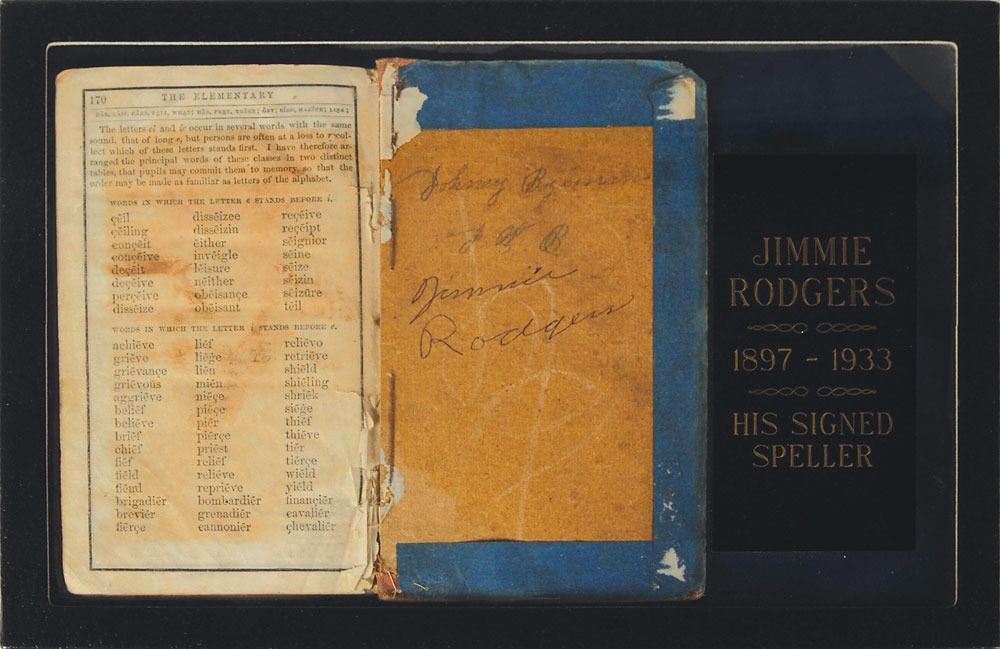 170 THE ELEMENTARY
The letters ei and ie occur in several words with the same
sound, that of long e, but persons are often at a loss to recol-
lect which of these letters stands first. I have therefore ar-
ranged the principal words of these classes in two distinct
tables, that pupils may commit them to memory, so that the
order may be made as familiar as letters of the alphabet.
WORDS IN WHICH THE LETTER e STANDS BEFORE i.
çēil dissēizee reçēive
çēiling dissēizin reçēipt
conçēit ēither sēignior
conçēive invēigle sēine
deçēit lēisure sēize
deçēive nēither sēizin
perçēive obēisançe sēizūre
dissēize obēisant tēil
WORDS IN WHICH THE LETTER i STANDS BEFORE e.
achiēve liēf reliēvo
griēve liēġe retriēve
griēvançe liēn shiēld
griēvoŭs miēn shiēling
aggriēve niēçe shriēk
beliēf piēçe siēġe
beliēve piēr thiēf
briēf piērçe thiēve
chiēf priēst tiēr
fiēf reliēf tiērçe
fiēld reliēve wiēld
fiēnd repriēve yiēld
brigadiēr bombardiēr financiēr
breviēr grenadiēr cavaliēr
fiērçe cannoniēr çhevaliēr
Johnny
Jimmie
Rodgers
JIMMIE
RODGERS
1897 - 1933
HIS SIGNED
SPELLER